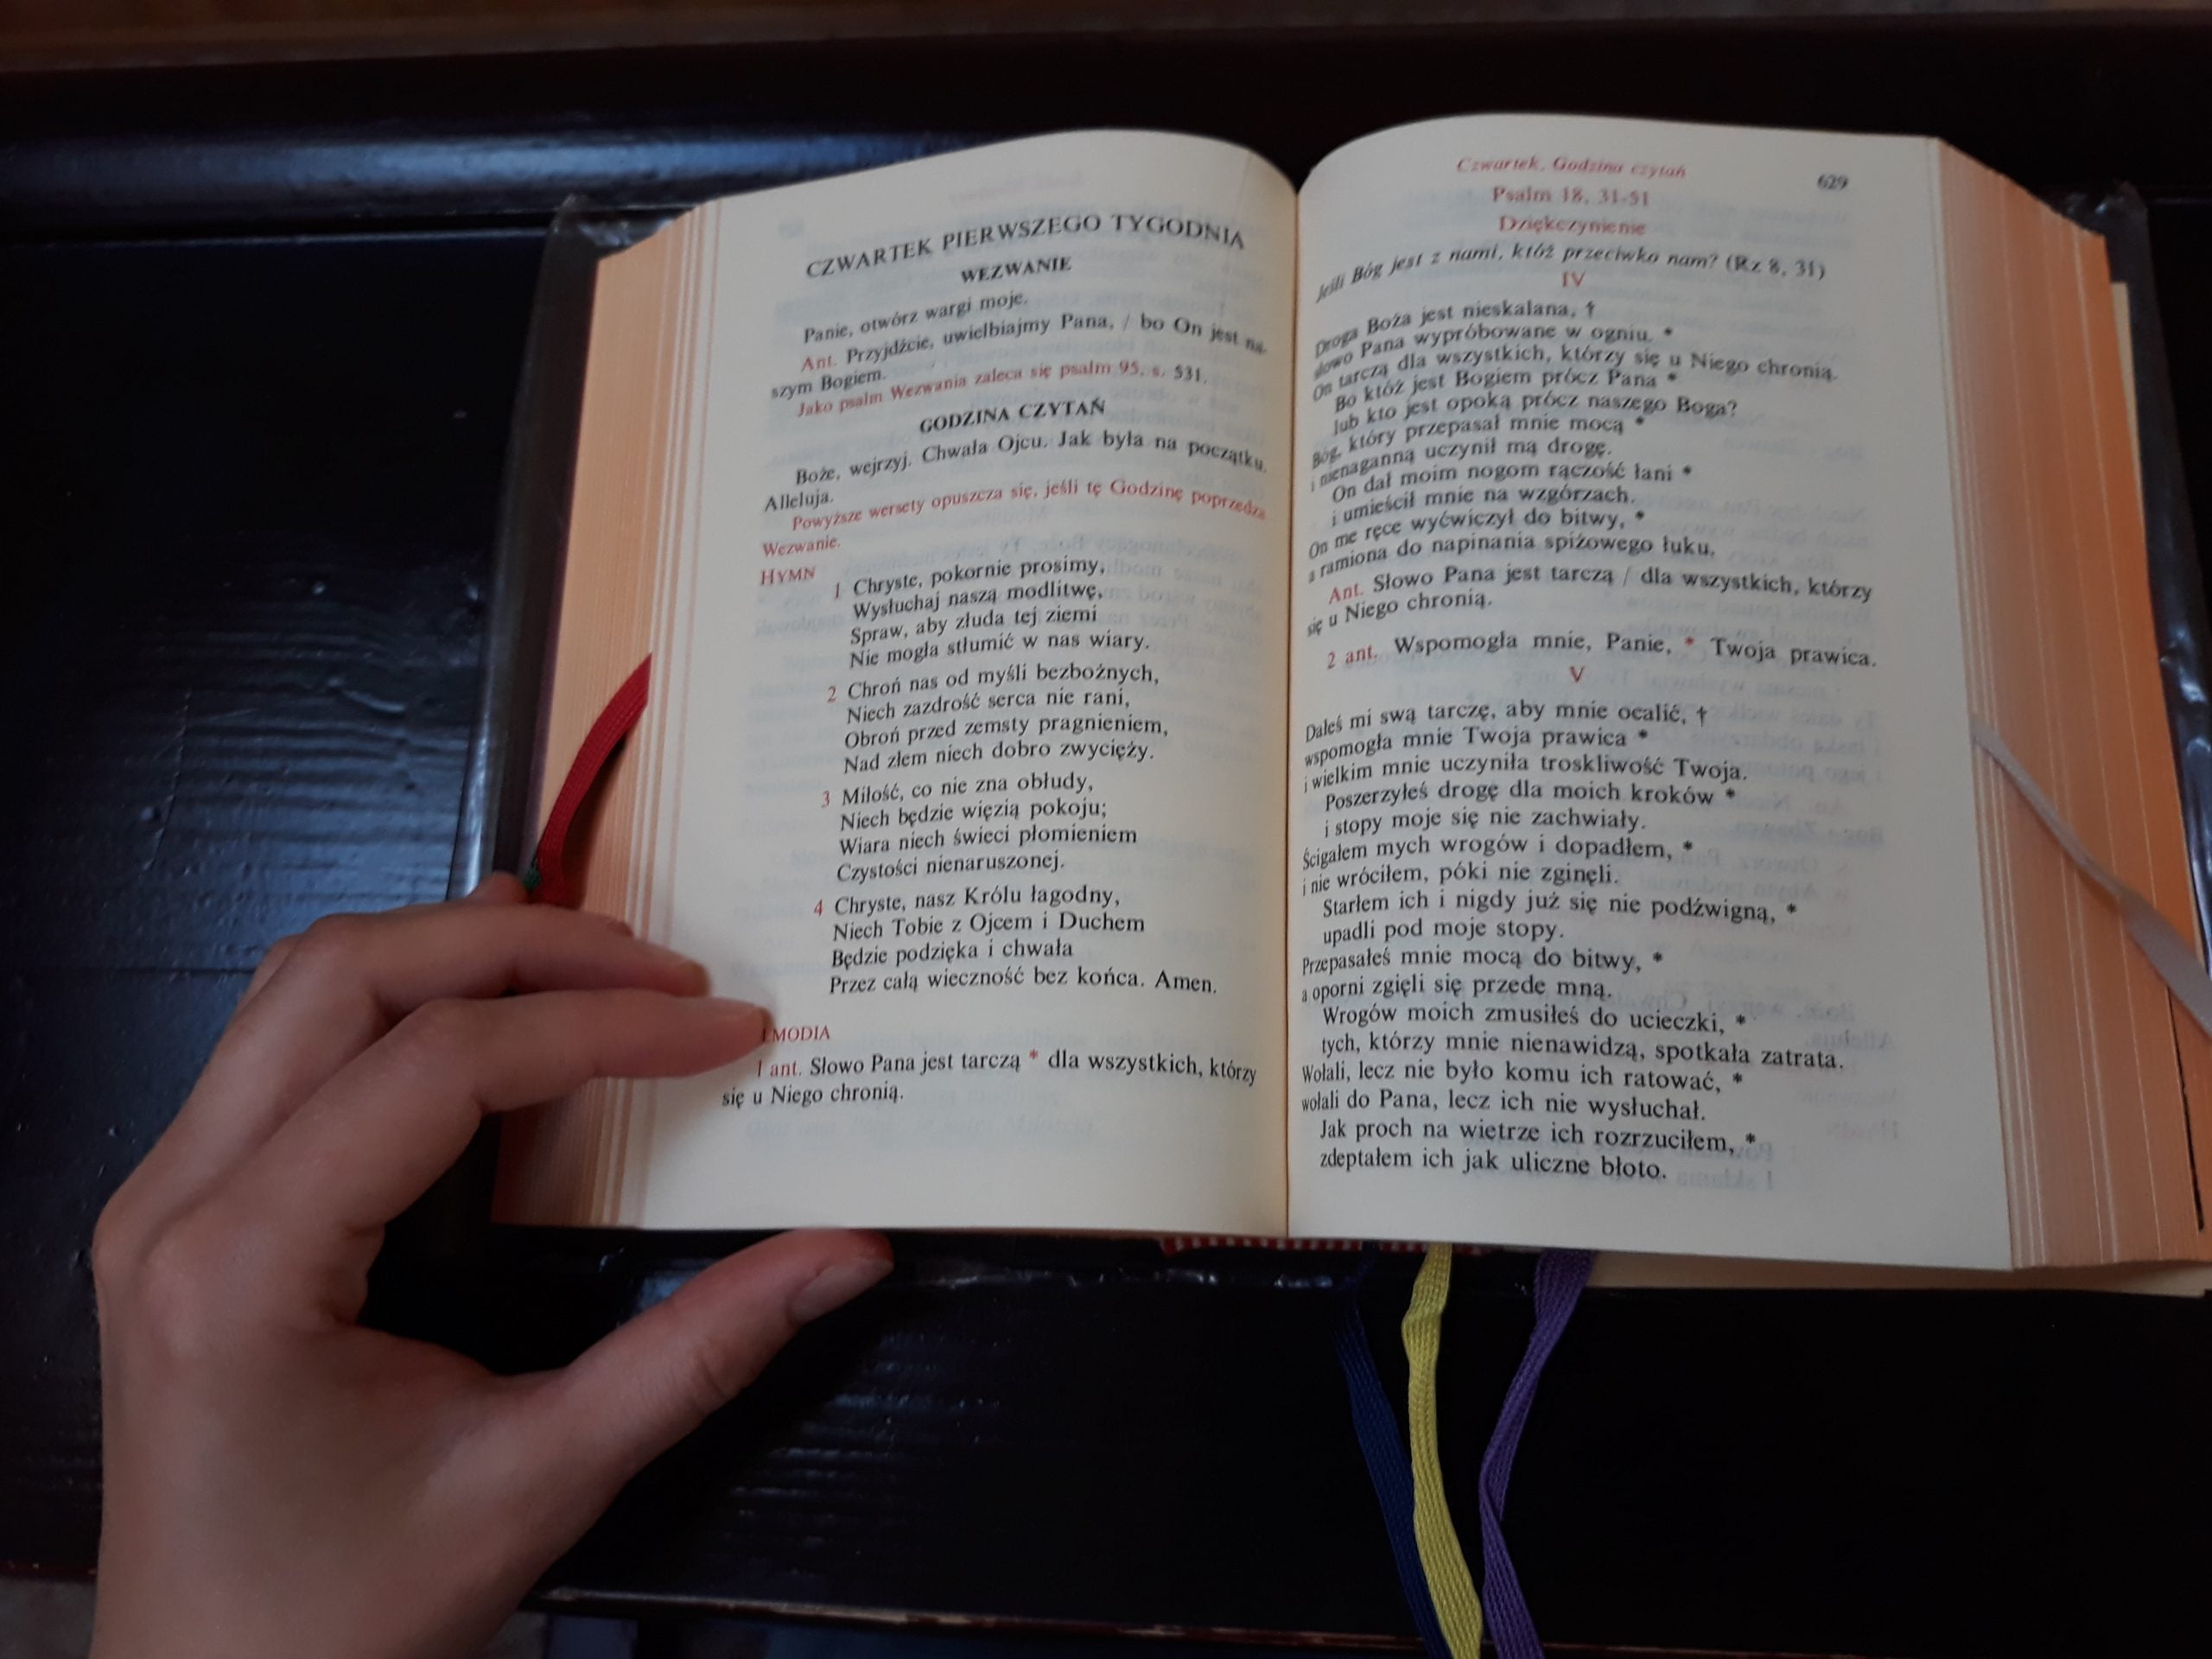 CZWARTEK PIERWSZEGO TYGODNIA
WEZWANIE
Panie, otwórz wargi moje.
Ant. Przyjdźcie, uwielbiajmy Pana, / bo On jest na-
szym Bogiem.
Jako psalm Wezwania zaleca się psalm 95, s. 531.
GODZINA CZYTAŃ
Boże, wejrzyj. Chwała Ojcu. Jak była na początku.
Alleluja.
Powyższe wersety opuszcza się, jeśli tę Godzinę poprzedza
Wezwanie.
HYMN
1 Chryste, pokornie prosimy,
Wysłuchaj naszą modlitwę,
Spraw, aby złuda tej ziemi
Nie mogła stłumić w nas wiary.
2 Chroń nas od myśli bezbożnych,
Niech zazdrość serca nie rani,
Obroń przed zemsty pragnieniem,
Nad złem niech dobro zwycięży.
3 Miłość, co nie zna obłudy,
Niech będzie więzią pokoju;
Wiara niech świeci płomieniem
Czystości nienaruszonej.
4 Chryste, nasz Królu łagodny,
Niech Tobie z Ojcem i Duchem
Będzie podzięka i chwała
Przez całą wieczność bez końca. Amen.
LMODIA
1 ant. Słowo Pana jest tarczą * dla wszystkich, którzy
się u Niego chronią.
Czwartek, Godzina czytań 629
Psalm 18, 31-51
Dziękczynienie
Jeśli Bóg jest z nami, któż przeciwko nam? (Rz 8, 31)
IV
Droga Boża jest nieskalana, †
słowo Pana wypróbowane w ogniu, *
On tarczą dla wszystkich, którzy się u Niego chronią.
Bo któż jest Bogiem prócz Pana *
lub kto jest opoką prócz naszego Boga?
Bóg, który przepasał mnie mocą *
i nienaganną uczynił mą drogę.
On dał moim nogom rączość łani *
i umieścił mnie na wzgórzach.
On me ręce wyćwiczył do bitwy, *
a ramiona do napinania spiżowego łuku.
Ant. Słowo Pana jest tarczą / dla wszystkich, którzy
się u Niego chronią.
2 ant. Wspomogła mnie, Panie, * Twoja prawica.
V
Dałeś mi swą tarczę, aby mnie ocalić, †
wspomogła mnie Twoja prawica *
i wielkim mnie uczyniła troskliwość Twoja.
Poszerzyłeś drogę dla moich kroków *
i stopy moje się nie zachwiały.
Ścigałem mych wrogów i dopadłem, *
i nie wróciłem, póki nie zginęli.
Starłem ich i nigdy już się nie podźwigną, *
upadli pod moje stopy.
Przepasałeś mnie mocą do bitwy, *
a oporni zgięli się przede mną.
Wrogów moich zmusiłeś do ucieczki, *
tych, którzy mnie nienawidzą, spotkała zatrata.
Wołali, lecz nie było komu ich ratować, *
wołali do Pana, lecz ich nie wysłuchał.
Jak proch na wietrze ich rozrzuciłem, *
zdeptałem ich jak uliczne błoto.